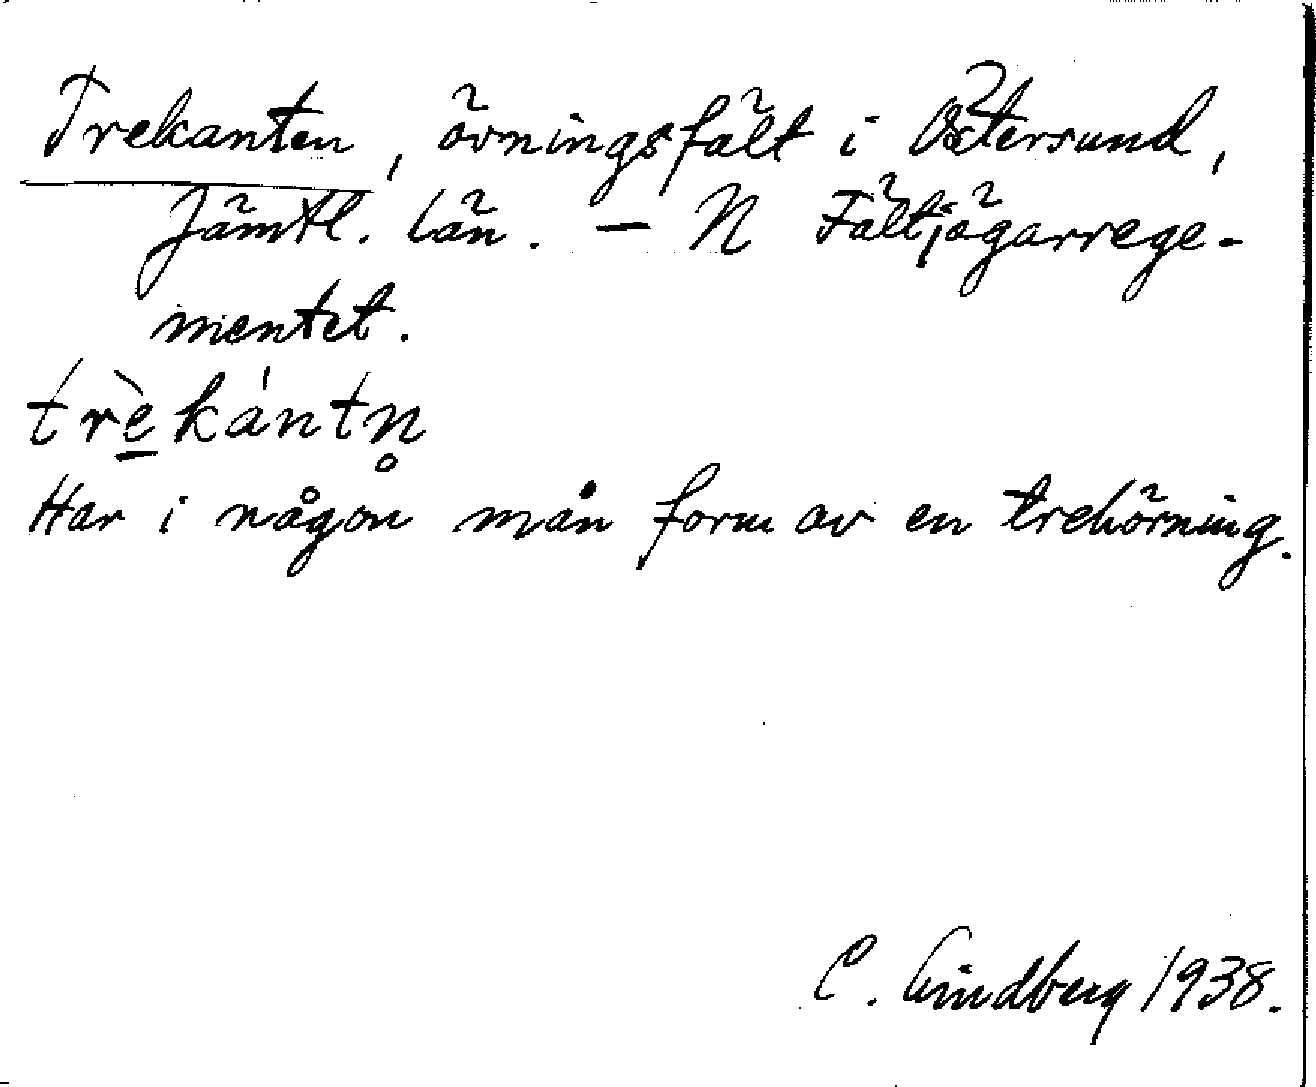 Trekanten, övningsfält i Östersund,
Jämtl. län. — N Fältjägarrege-
mentet.
trè̱ká̀ntn̥
Har i någon mån form av en trehörning.
C. Lindberg 1938.